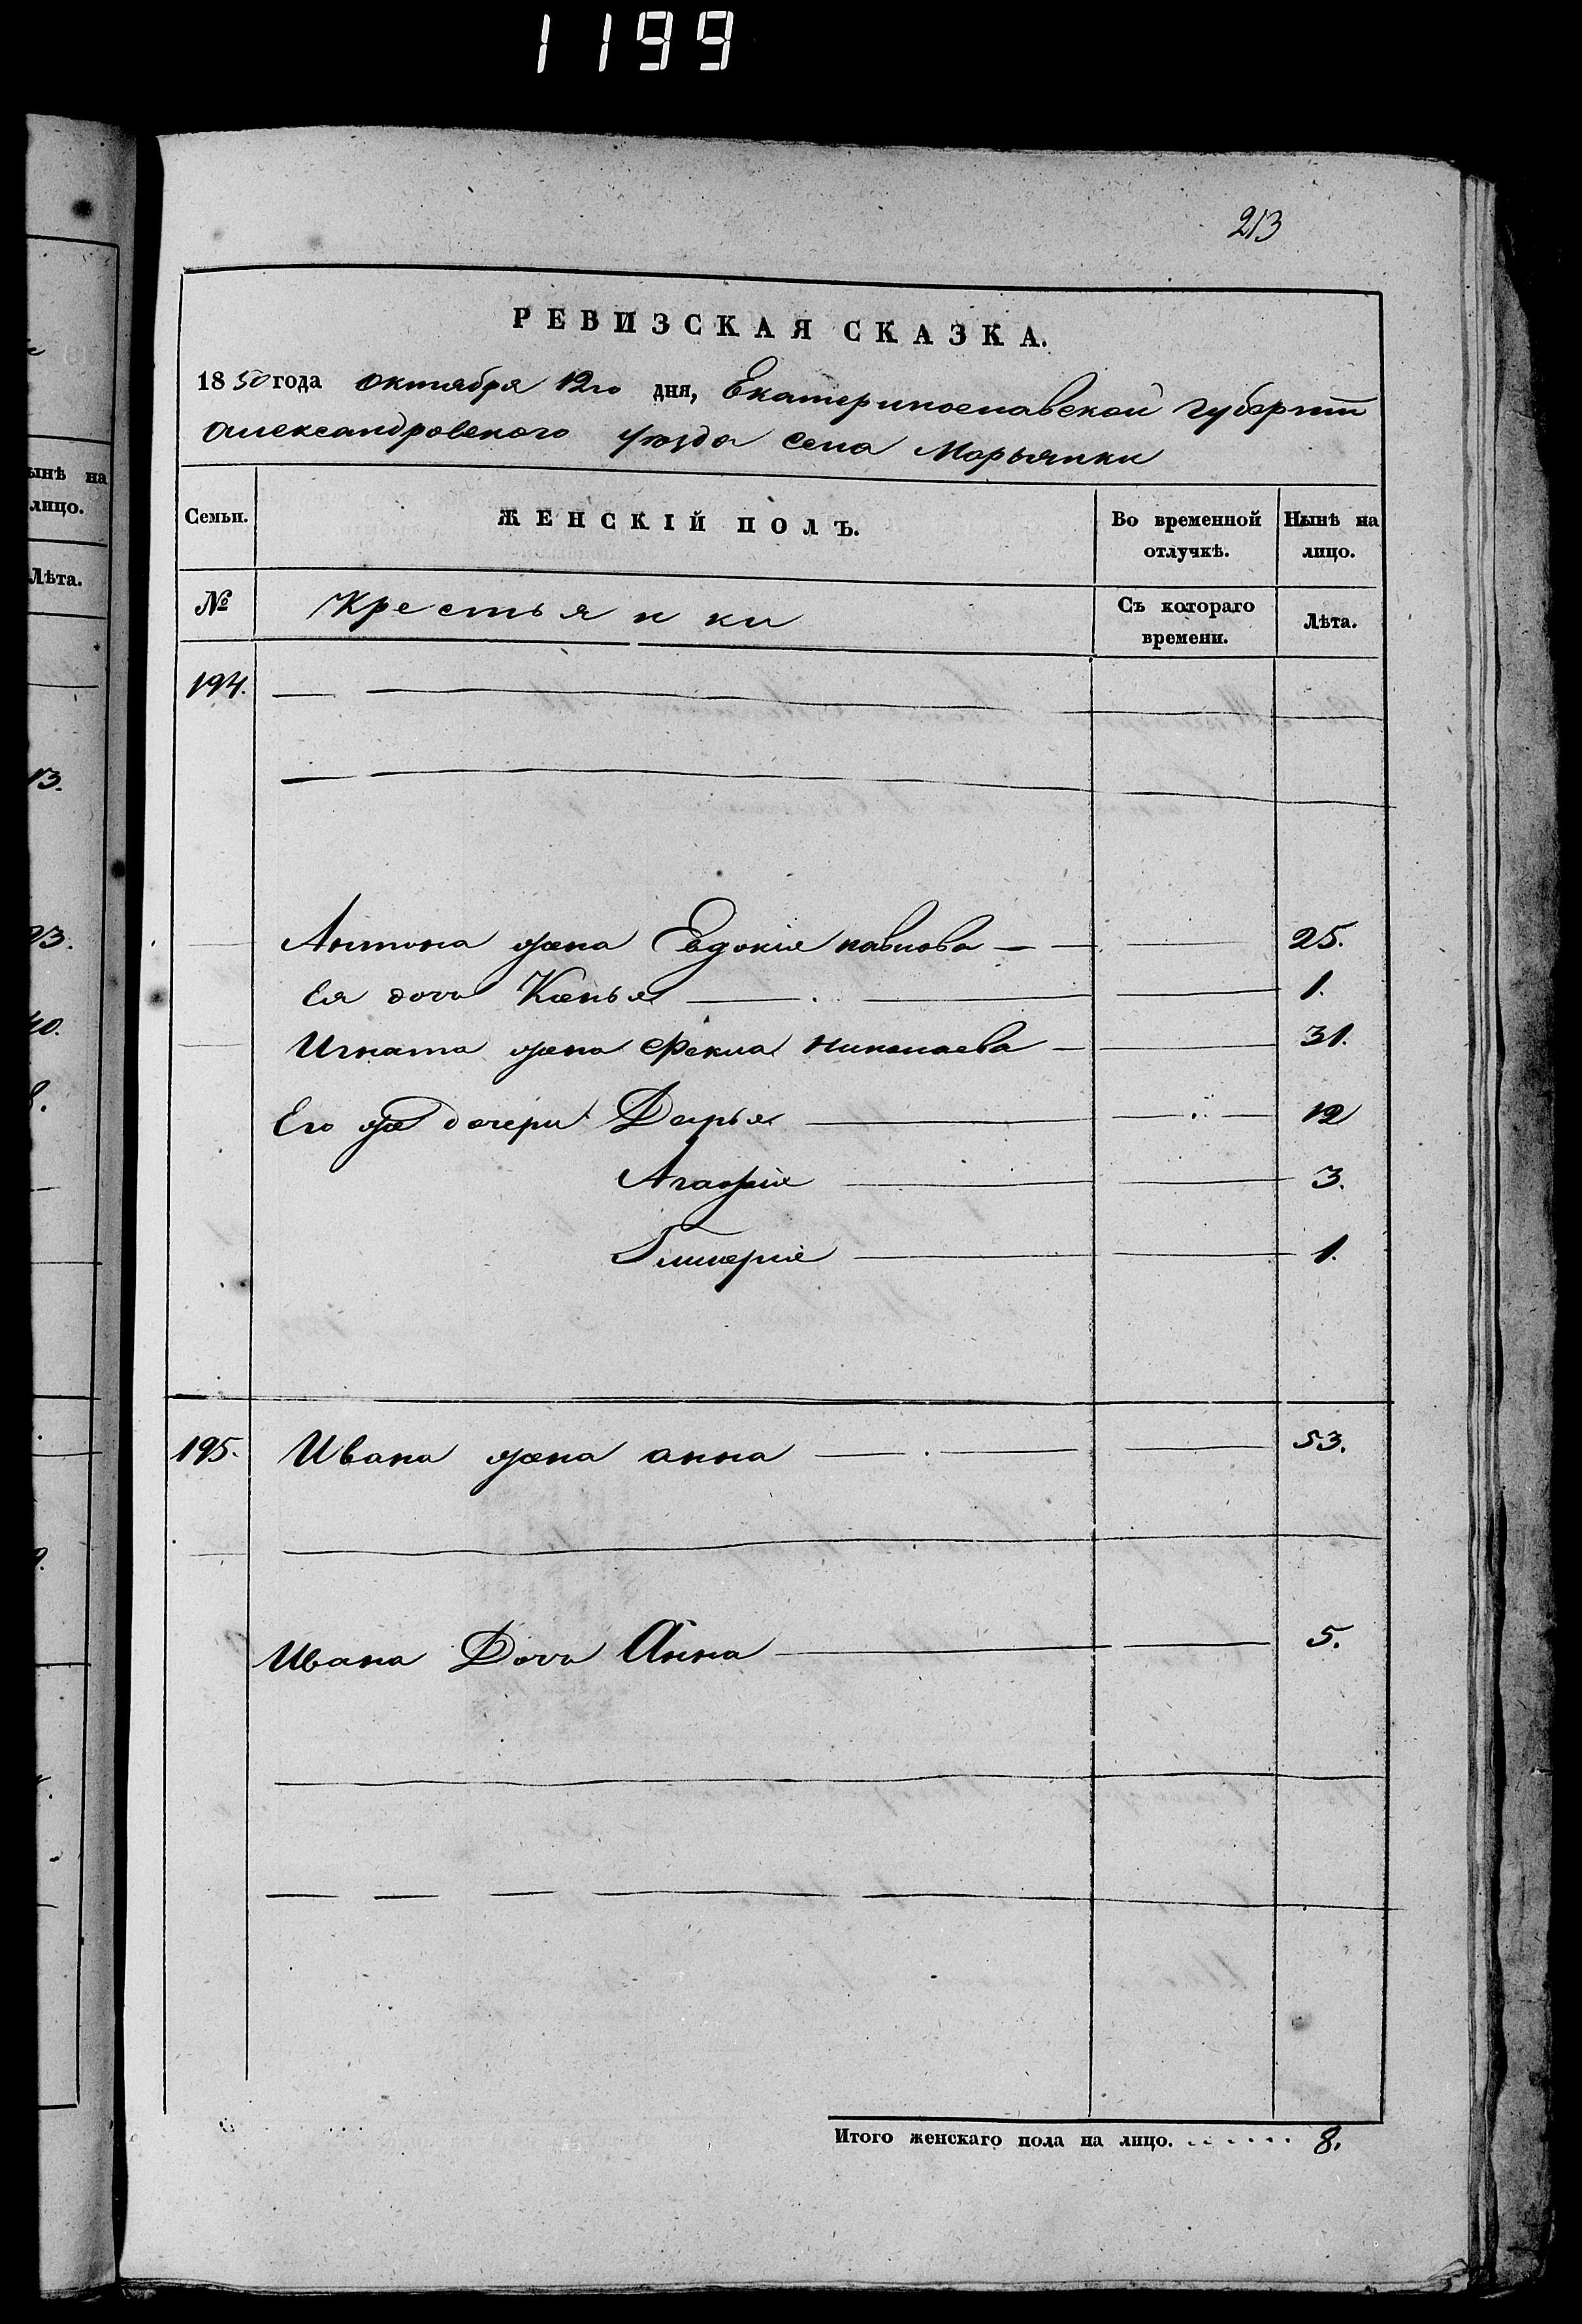 1199
213
РЕВИЗСКАЯ СКАЗКА.
1850 года октября 12го дня, Екатеринославской губерніи
Александровского уѣзда села Марьянки
Семьи.
ЖЕНСКІЙ ПОЛЪ.
Во временной отлучкѣ.
Нынѣ на лицо.
№
Крестьянки
Съ котораго времени.
Лѣта.
194.
Антона жена Евдокія павлова 25.
Ея дочь 1.
Игната жена Фекла николаева 31.
Его же дочери Дарья 12
Агафія 3.
Гликерія 1.
195. Ивана жена анна 53.
Ивана Дочь Анна 5.
Итого женскаго пола на лицо. 8.
ынѣ на
лицо.
Лѣта.
13.
23.
40.
8.